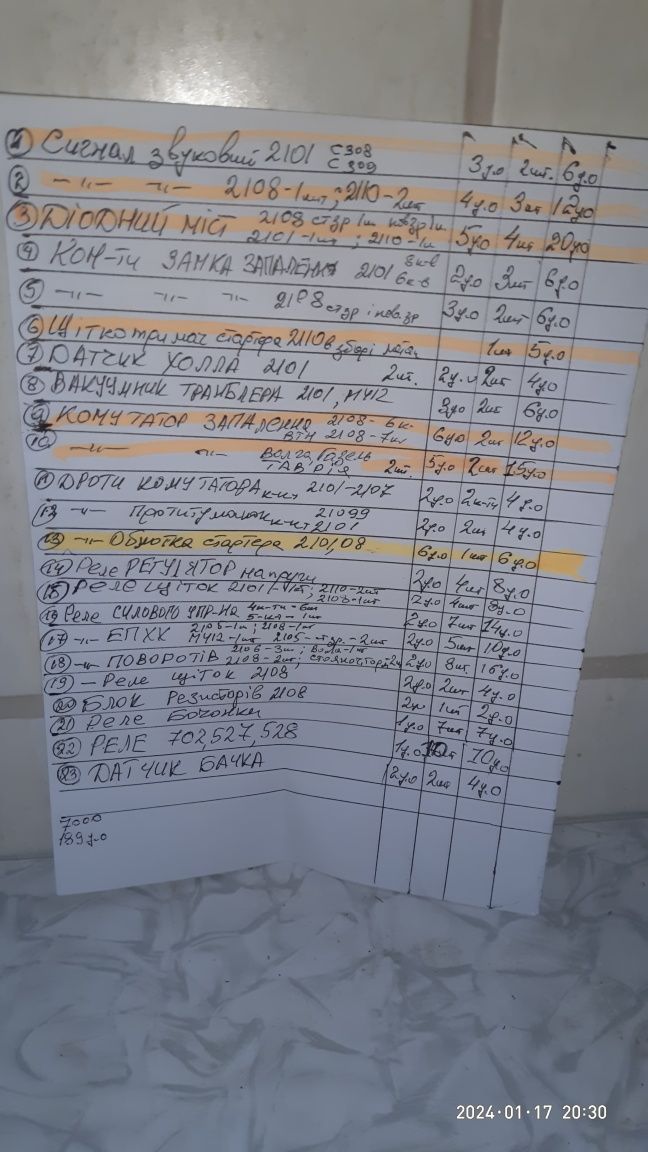 1 Сигнал звуковий 2101 С308 С309 3у.о 2шт. 6у.о
2 -"- -"- 2108-1шт; 2110-2шт 4у.о 3шт 12у.о
3 ДІОДНИЙ МІСТ 2108 ст зр 1ш нов зр 1ш 2101-1шт; 2110-1ш 5у.о 4шт 20у.о
4 КОН-ТИ ЗАМКА ЗАПАЛЕННЯ 2101 6к-в 2у.о 3шт 6у.о
5 -"- -"- -"- 2108 ст зр і нов. зр 3у.о 2шт 6у.о
6 Щіткотримач стартера 2110 в зборі 1шт 5у.о
7 ДАТЧИК ХОЛЛА 2101 2шт. 2у.о 2шт 4у.о
8 ВАКУУМНИК ТРАМБЛЕРА 2101, М412 3у.о 2шт 6у.о
9 КОМУТАТОР ЗАПАЛЕННЯ 2108-6к. ВТН 2108-7к 6у.о 2шт 12у.о
10 -"- -"- Волга Газель ТАВРІЯ 2шт. 5у.о 15у.о
11 ДРОТИ КОМУТАТОРА к-кт 2101-2107 2у.о 2к-ти 4у.о
12 -"- Протитуманок к-кт 21099 2101 2у.о 2шт 4у.о
13 -"- Обмотка стартера 2101,08 6у.о 1шт 6у.о
14 Реле РЕГУЛЯТОР напруги 2у.о 4шт 8у.о
15 Реле щіток 2101-1шт; 2110-2шт 2108-1шт 2у.о 4шт 8у.о
16 Реле СИЛОВОГО УПР-НЯ 4к-ти-6шт 5-ка-1шт 2у.о 7шт 14у.о
17 -"- ЕПХХ 2103-1ш; 2108-1шт М412-1шт 2105-2шт 2у.о 5шт 10у.о
18 -"- ПОВОРОТІВ 2106-3ш; Волга-1шт 2108-2шт; 2у.о 8шт. 16у.о
19 -Реле щіток 2108 2у.о 2шт 4у.о
20 БЛОК Резисторів 2108 2у.о 1шт 2у.о
21 Реле Бочонки 1у.о 7шт 7у.о
22 РЕЛЕ 702,527,528 1у.о 10шт 10у.о
23 ДАТЧИК БАЧКА 2у.о 2шт 4у.о
7000
189у.о
2024·01·17 20:30